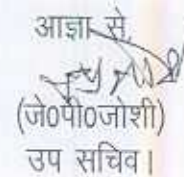 आज्ञा से,
(जे0पी0जोशी)
उप सचिव।